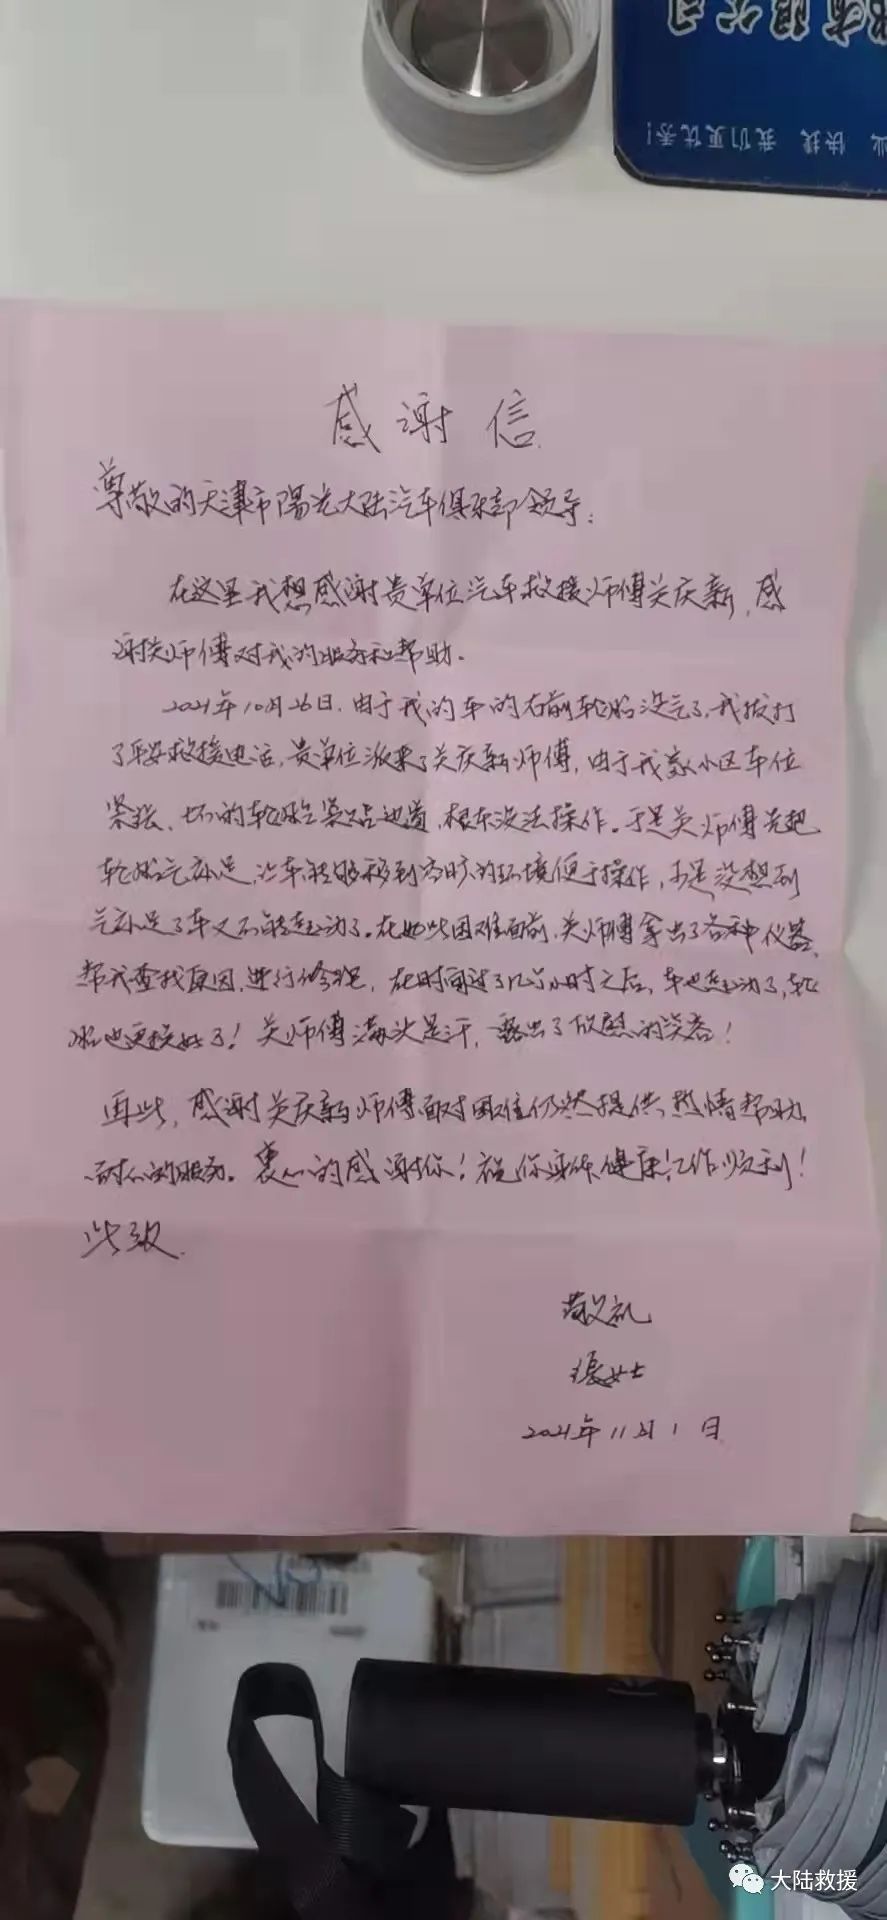 有限公司
业 快捷 我们更优秀!
感谢信
尊敬的天津市陽光大陆汽车俱乐部领导:
在这里我想感谢贵单位汽车救援师傅关庆新,感
谢关师傅对我的服务和帮助.
2021年10月26日.由于我的车的右前轮胎没气了,我拔打
了平安救援电话,贵单位派来了关庆新师傅,由于我家小区车位
紧张、坏的轮胎紧贴边道,根本没法操作。于是关师傅先把
轮胎气补足,让车能够移到宽旷的环境便于操作,于是没想到
气补足了车又不能起动了。在如此困难面前,关师傅拿出了各种仪器,
帮我查找原因,进行修理,在时间过了几个小时之后,车也起动了,轮
胎也更换好了!关师傅满头是汗,露出了欣慰的笑容!
再此,感谢关庆新师傅面对困难仍然提供热情帮助,
耐心的服务。衷心的感谢你!祝你身体健康!工作顺利!
此致
敬礼
張女士
2021年11月1日
大陆救援